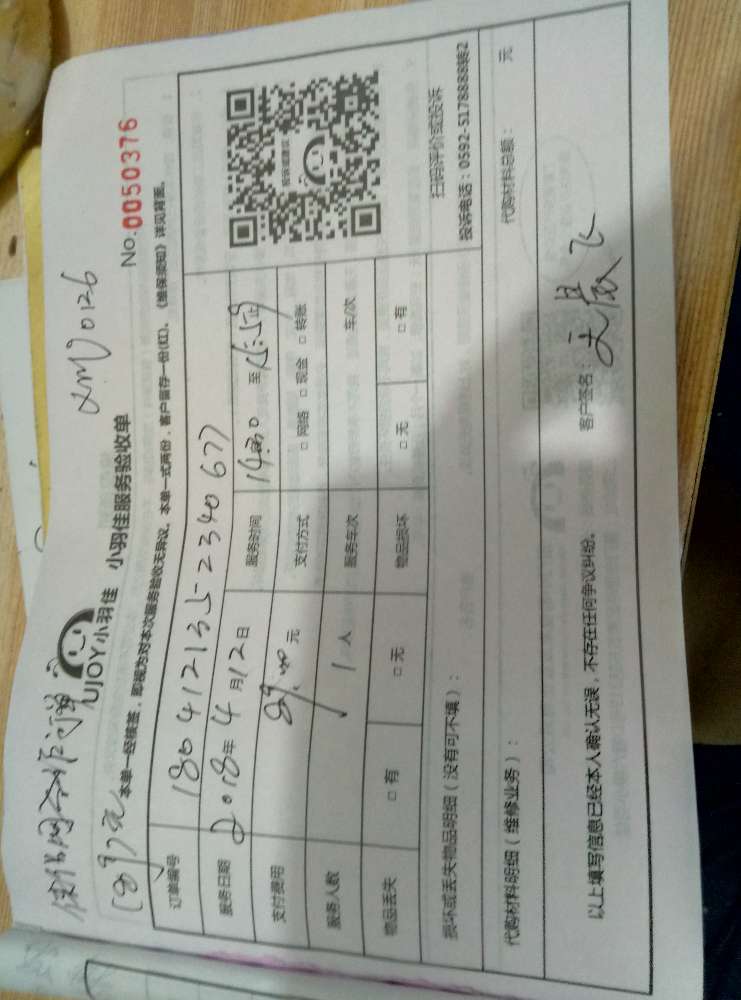 xm90126
UJOY小羽佳 小羽佳服务验收单
No.0050376
本单一经核签，即视为对本次服务验收无异议。本单一式两份，客户留存一份(红)。《维保须知》详见背面。
订单编号 180412135-2340677
服务日期 2018年4月12日 服务时间 14:30 至 15:59止
支付费用 元 支付方式 □网络 □现金 □转账
服务人数 1人 服务车次 车/次
物品丢失 □有 □无 物品损坏 □无 □有
投诉或建议
扫码评价或投诉
投诉电话：0592-5178888转2
损坏或丢失物品明细（没有可不填）：
代购材料明细（维修业务）： 代购材料总额： 元
以上填写信息已经本人确认无误，不存在任何争议纠纷。 客户签名：